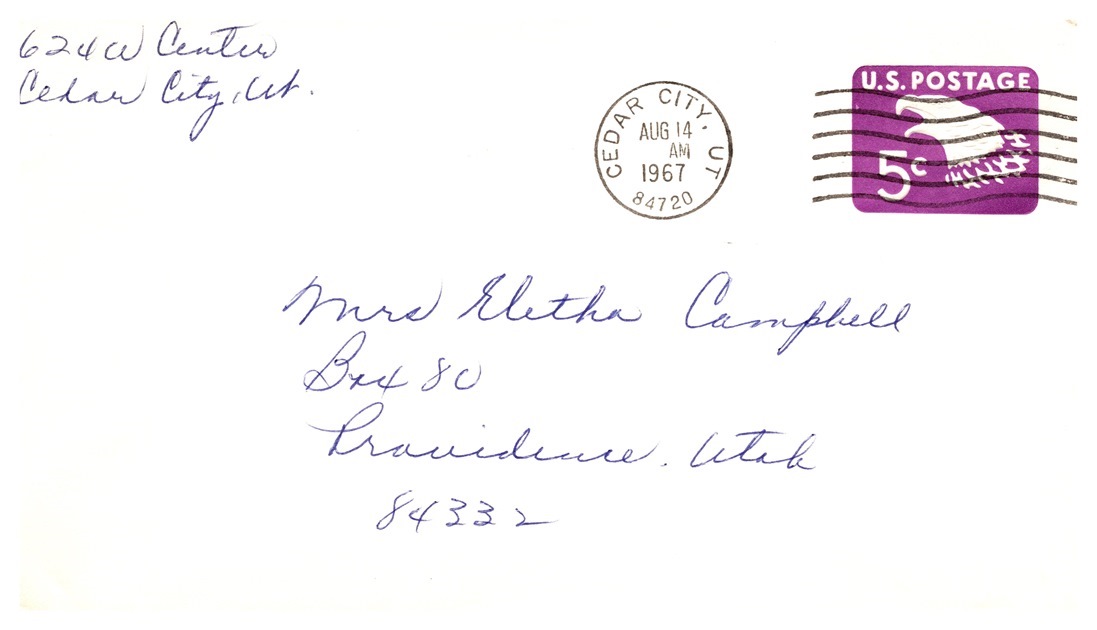 624 W Center
Cedar City, Ut.
CEDAR CITY, UT
AUG 14
AM
1967
84720
U.S. POSTAGE
5c
Mrs Eletha Campbell
Box 80
Providence, Utah
84332